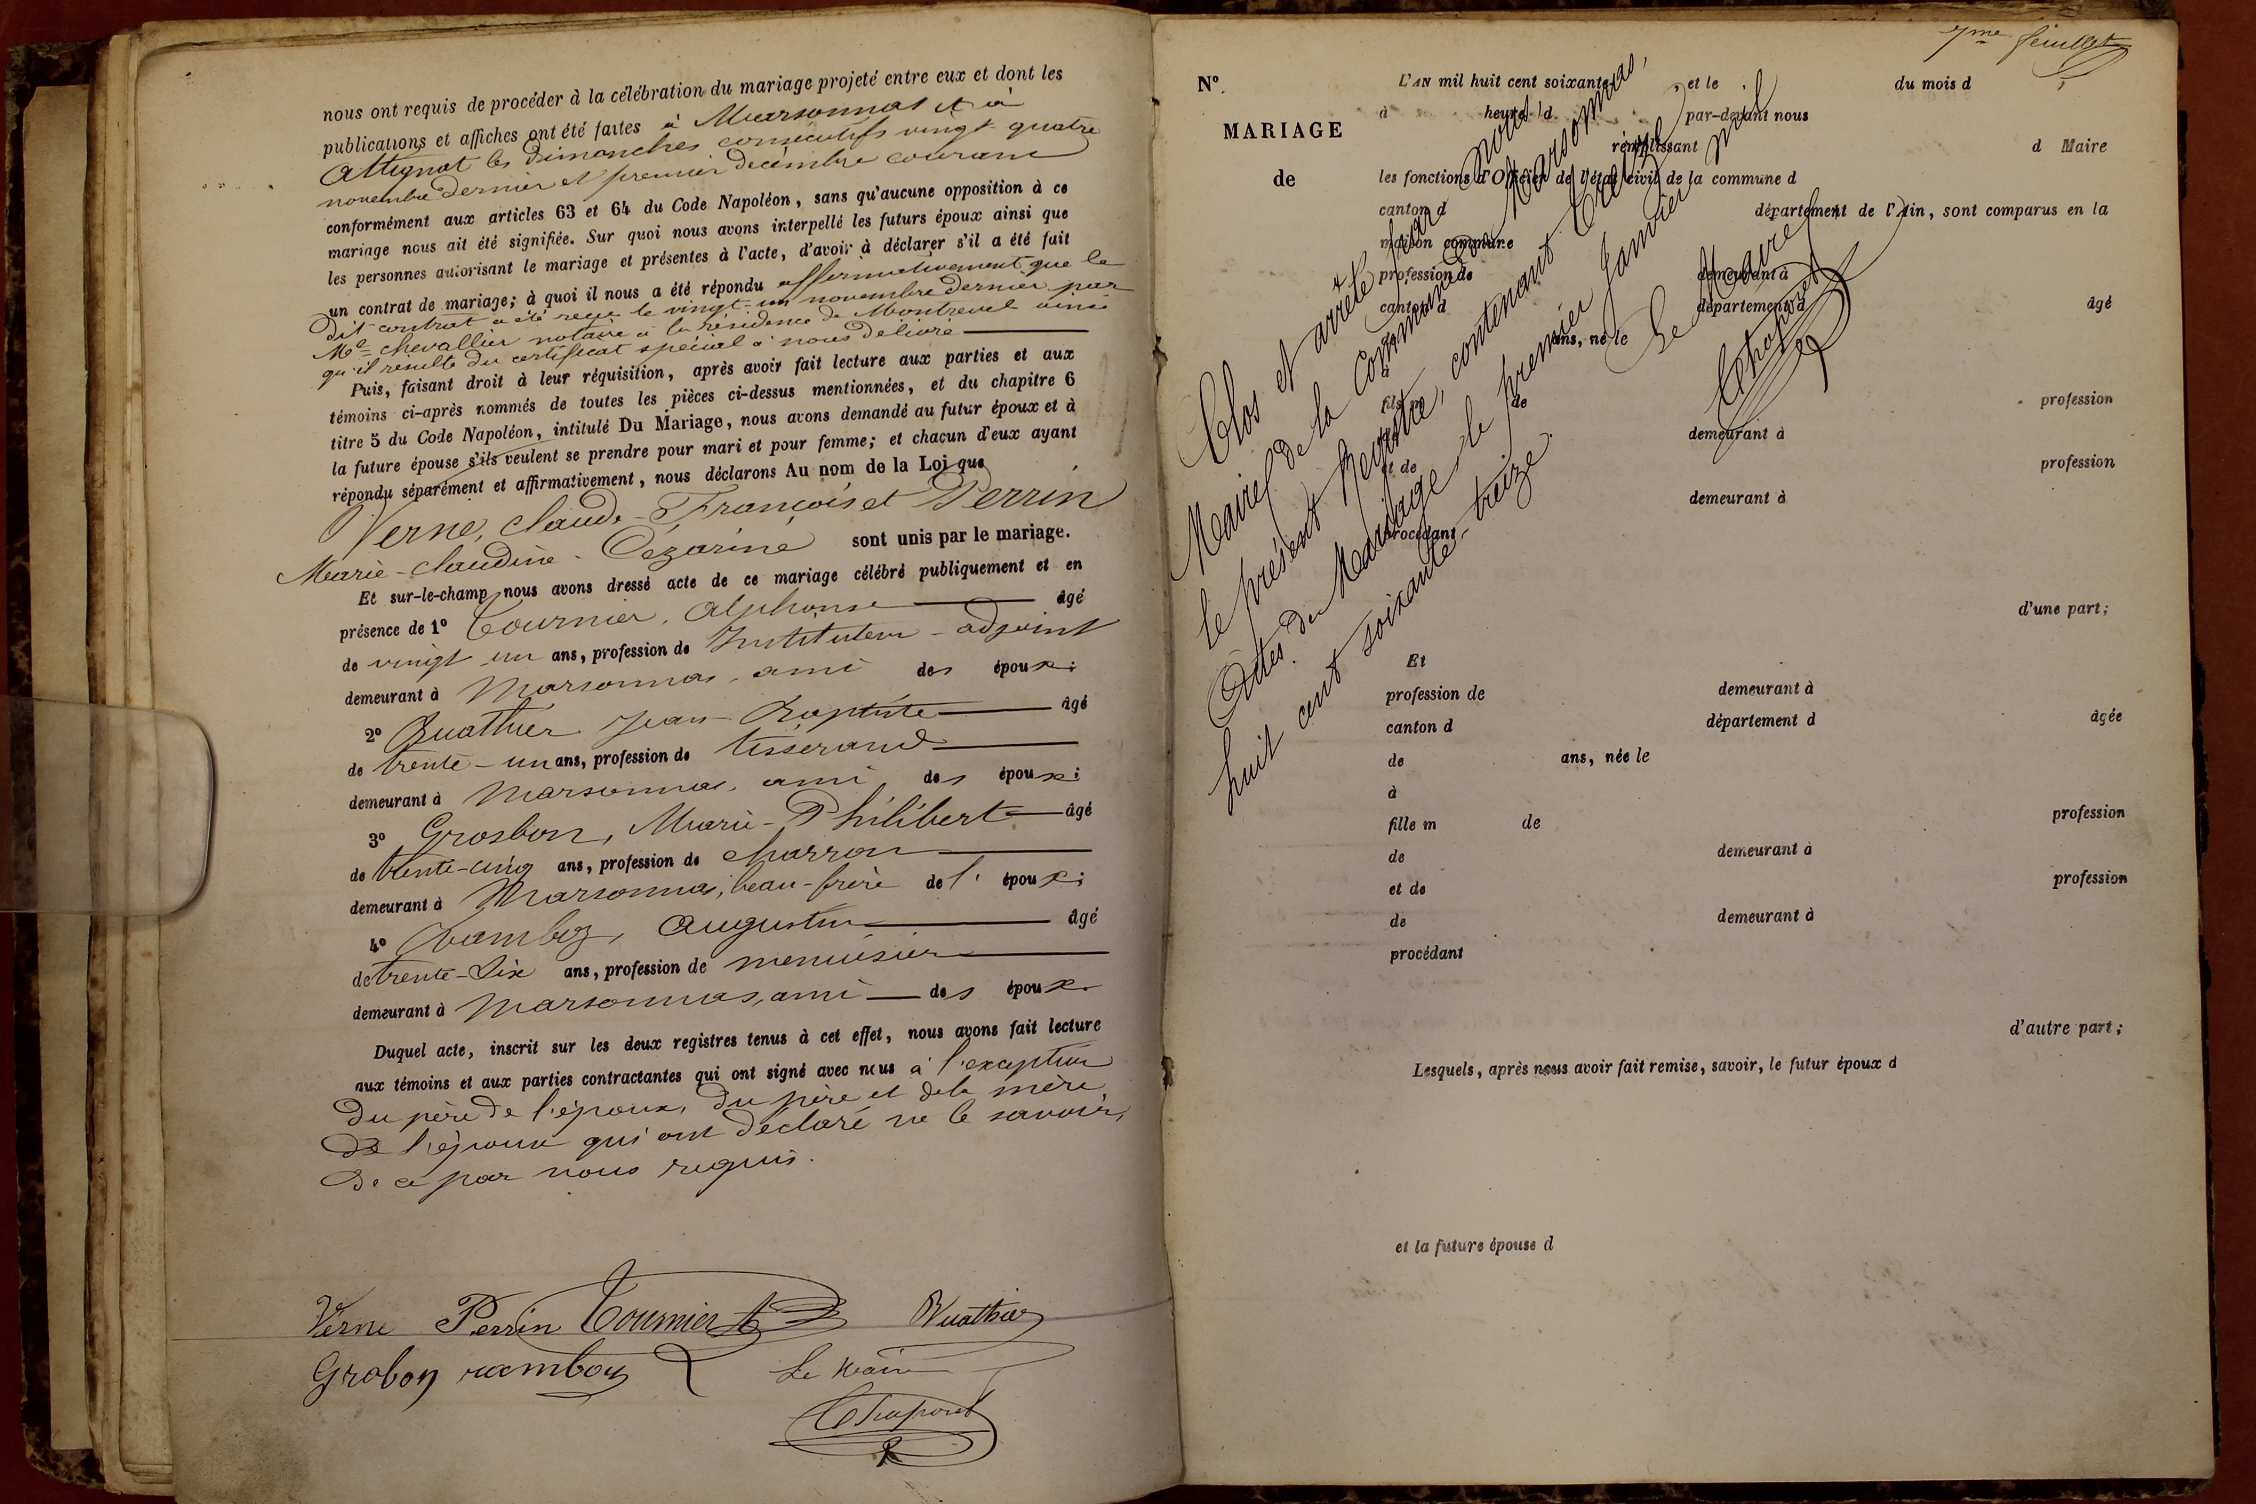 nous ont requis de procéder à la célébration du mariage projeté entre eux et dont les
publications et affiches ont été faites à Marsonnas et à
Attignat les dimanches consécutifs vingt quatre
novembre dernier et premier décembre courant
conformément aux articles 63 et 64 du Code Napoléon, sans qu'aucune opposition à ce
mariage nous ait été signifiée. Sur quoi nous avons interpellé les futurs époux ainsi que
les personnes autorisant le mariage et présentes à l'acte, d'avoir à déclarer s'il a été fait
un contrat de mariage; à quoi il nous a été répondu affirmativement que le
dit contrat a été reçu le vingt-un novembre dernier par
Me Chevallier notaire à la résidence de Montrevel ainsi
qu'il résulte du certificat spécial à nous délivré
Puis, faisant droit à leur réquisition, après avoir fait lecture aux parties et aux
témoins ci-après nommés de toutes les pièces ci-dessus mentionnées, et du chapitre 6
titre 5 du Code Napoléon, intitulé Du Mariage, nous avons demandé au futur époux et à
la future épouse s'ils veulent se prendre pour mari et pour femme; et chacun d'eux ayant
répondu séparément et affirmativement, nous déclarons Au nom de la Loi que
Verne, Claude-François et Perrin
Marie-Claudine-Cézarine sont unis par le mariage.
Et sur-le-champ nous avons dressé acte de ce mariage célébré publiquement et en
présence de 1° Tournier, Alphonse âgé
de vingt un ans, profession de Instituteur-adjoint
demeurant à Marsonnas, ami des époux;
2° Quathier Jean-Baptiste âgé
de trente-un ans, profession de tisserand
demeurant à Marsonnas, ami des époux;
3° Grosbon, Marie-Philibert âgé
de trente-cinq ans, profession de charron
demeurant à Marsonnas, beau-frère de l'époux;
4° Augustin âgé
de trente-six ans, profession de menuisier
demeurant à Marsonnas, ami des époux.
Duquel acte, inscrit sur les deux registres tenus à cet effet, nous avons fait lecture
aux témoins et aux parties contractantes qui ont signé avec nous à l'exception
du père de l'époux, du père et de la mère
de l'épouse qui ont déclaré ne le savoir,
de ce par nous requis.
Verne Perrin Tournier A
Grobon Le Maire
7me feuillet
N°.
MARIAGE
de
L'AN mil huit cent soixante , et le du mois d ,
à heure d par-devant nous
remplissant d Maire
les fonctions d'Officier de l'état civil de la commune d
canton d département de l'Ain, sont comparus en la
maison commune
profession de demeurant à
canton d département d âgé
de ans, né le
à
fils m de profession
de demeurant à
et de profession
de demeurant à
procédant
d'une part;
Clos et arrêté par nous
Maire de la Commune de Marsonnas,
le présent Registre, contenant treize
Actes de Mariage le premier Janvier mil
huit cent soixante-treize.
Le Maire
Et
profession de demeurant à
canton d département d âgée
de ans, née le
à
fille m de profession
de demeurant à
et de profession
de demeurant à
procédant
d'autre part;
Lesquels, après nous avoir fait remise, savoir, le futur époux d
et la future épouse d